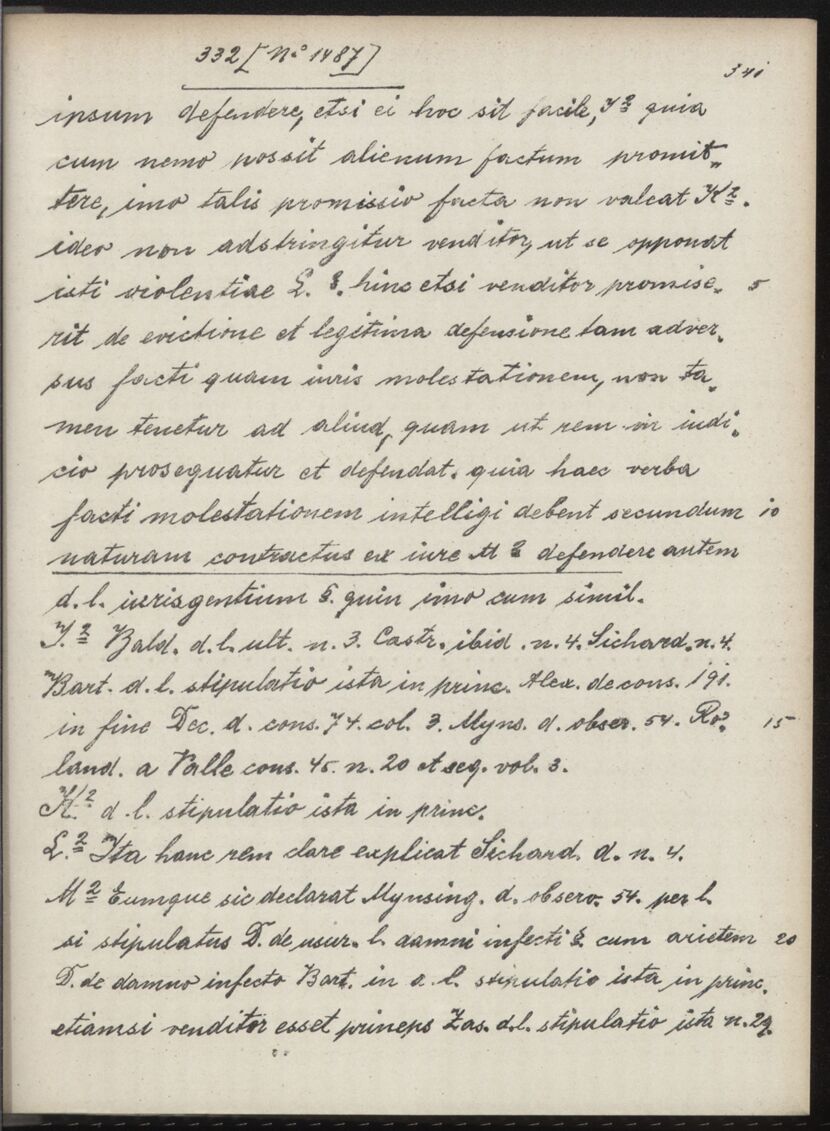 332 [N.° 1487]
341
ipsum defendere, etsi ei hoc sit facile, I 2 quia
cum nemo possit alienum factum promit„
tere, imo talis promissio facta non valeat K 2.
ideo non adstringitur venditor, ut se opponat
isti violentiae L. 2. hinc etsi venditor promise„ 5
rit de evictione et legitima defensione tam adver„
sus facti quam iuris molestationem, non ta„
men tenetur ad aliud, quam ut rem in iudi„
cio prosequatur et defendat. quia haec verba
facti molestationem intelligi debent secundum 10
naturam contractus ex iure M 2 defendere autem
d. l. iurisgentium §. quin imo cum simil.
I. 2 Bald. d. l. ult. n. 3. Castr. ibid. n. 4. Sichard. n. 4.
Bart. d. l. stipulatio ista in princ. Alex. de cons. 191.
in fine Dec. d. cons. 74. col. 3. Myns. d. obser. 54. Ro„ 15
land. a Valle cons. 45. n. 20 et seq. vol. 3.
K. 2 d. l. stipulatio ista in princ.
L. 2 Ita hanc rem clare explicat Sichard. d. n. 4.
M 2 Eumque sic declarat Mynsing. d. observ. 54. per l.
si stipulatus D. de usur. l. damni infecti §. cum arietem 20
D. de damno infecto Bart. in d. l. stipulatio ista in princ.
etiamsi venditor esset princeps Zas. d. l. stipulatio ista n. 29.